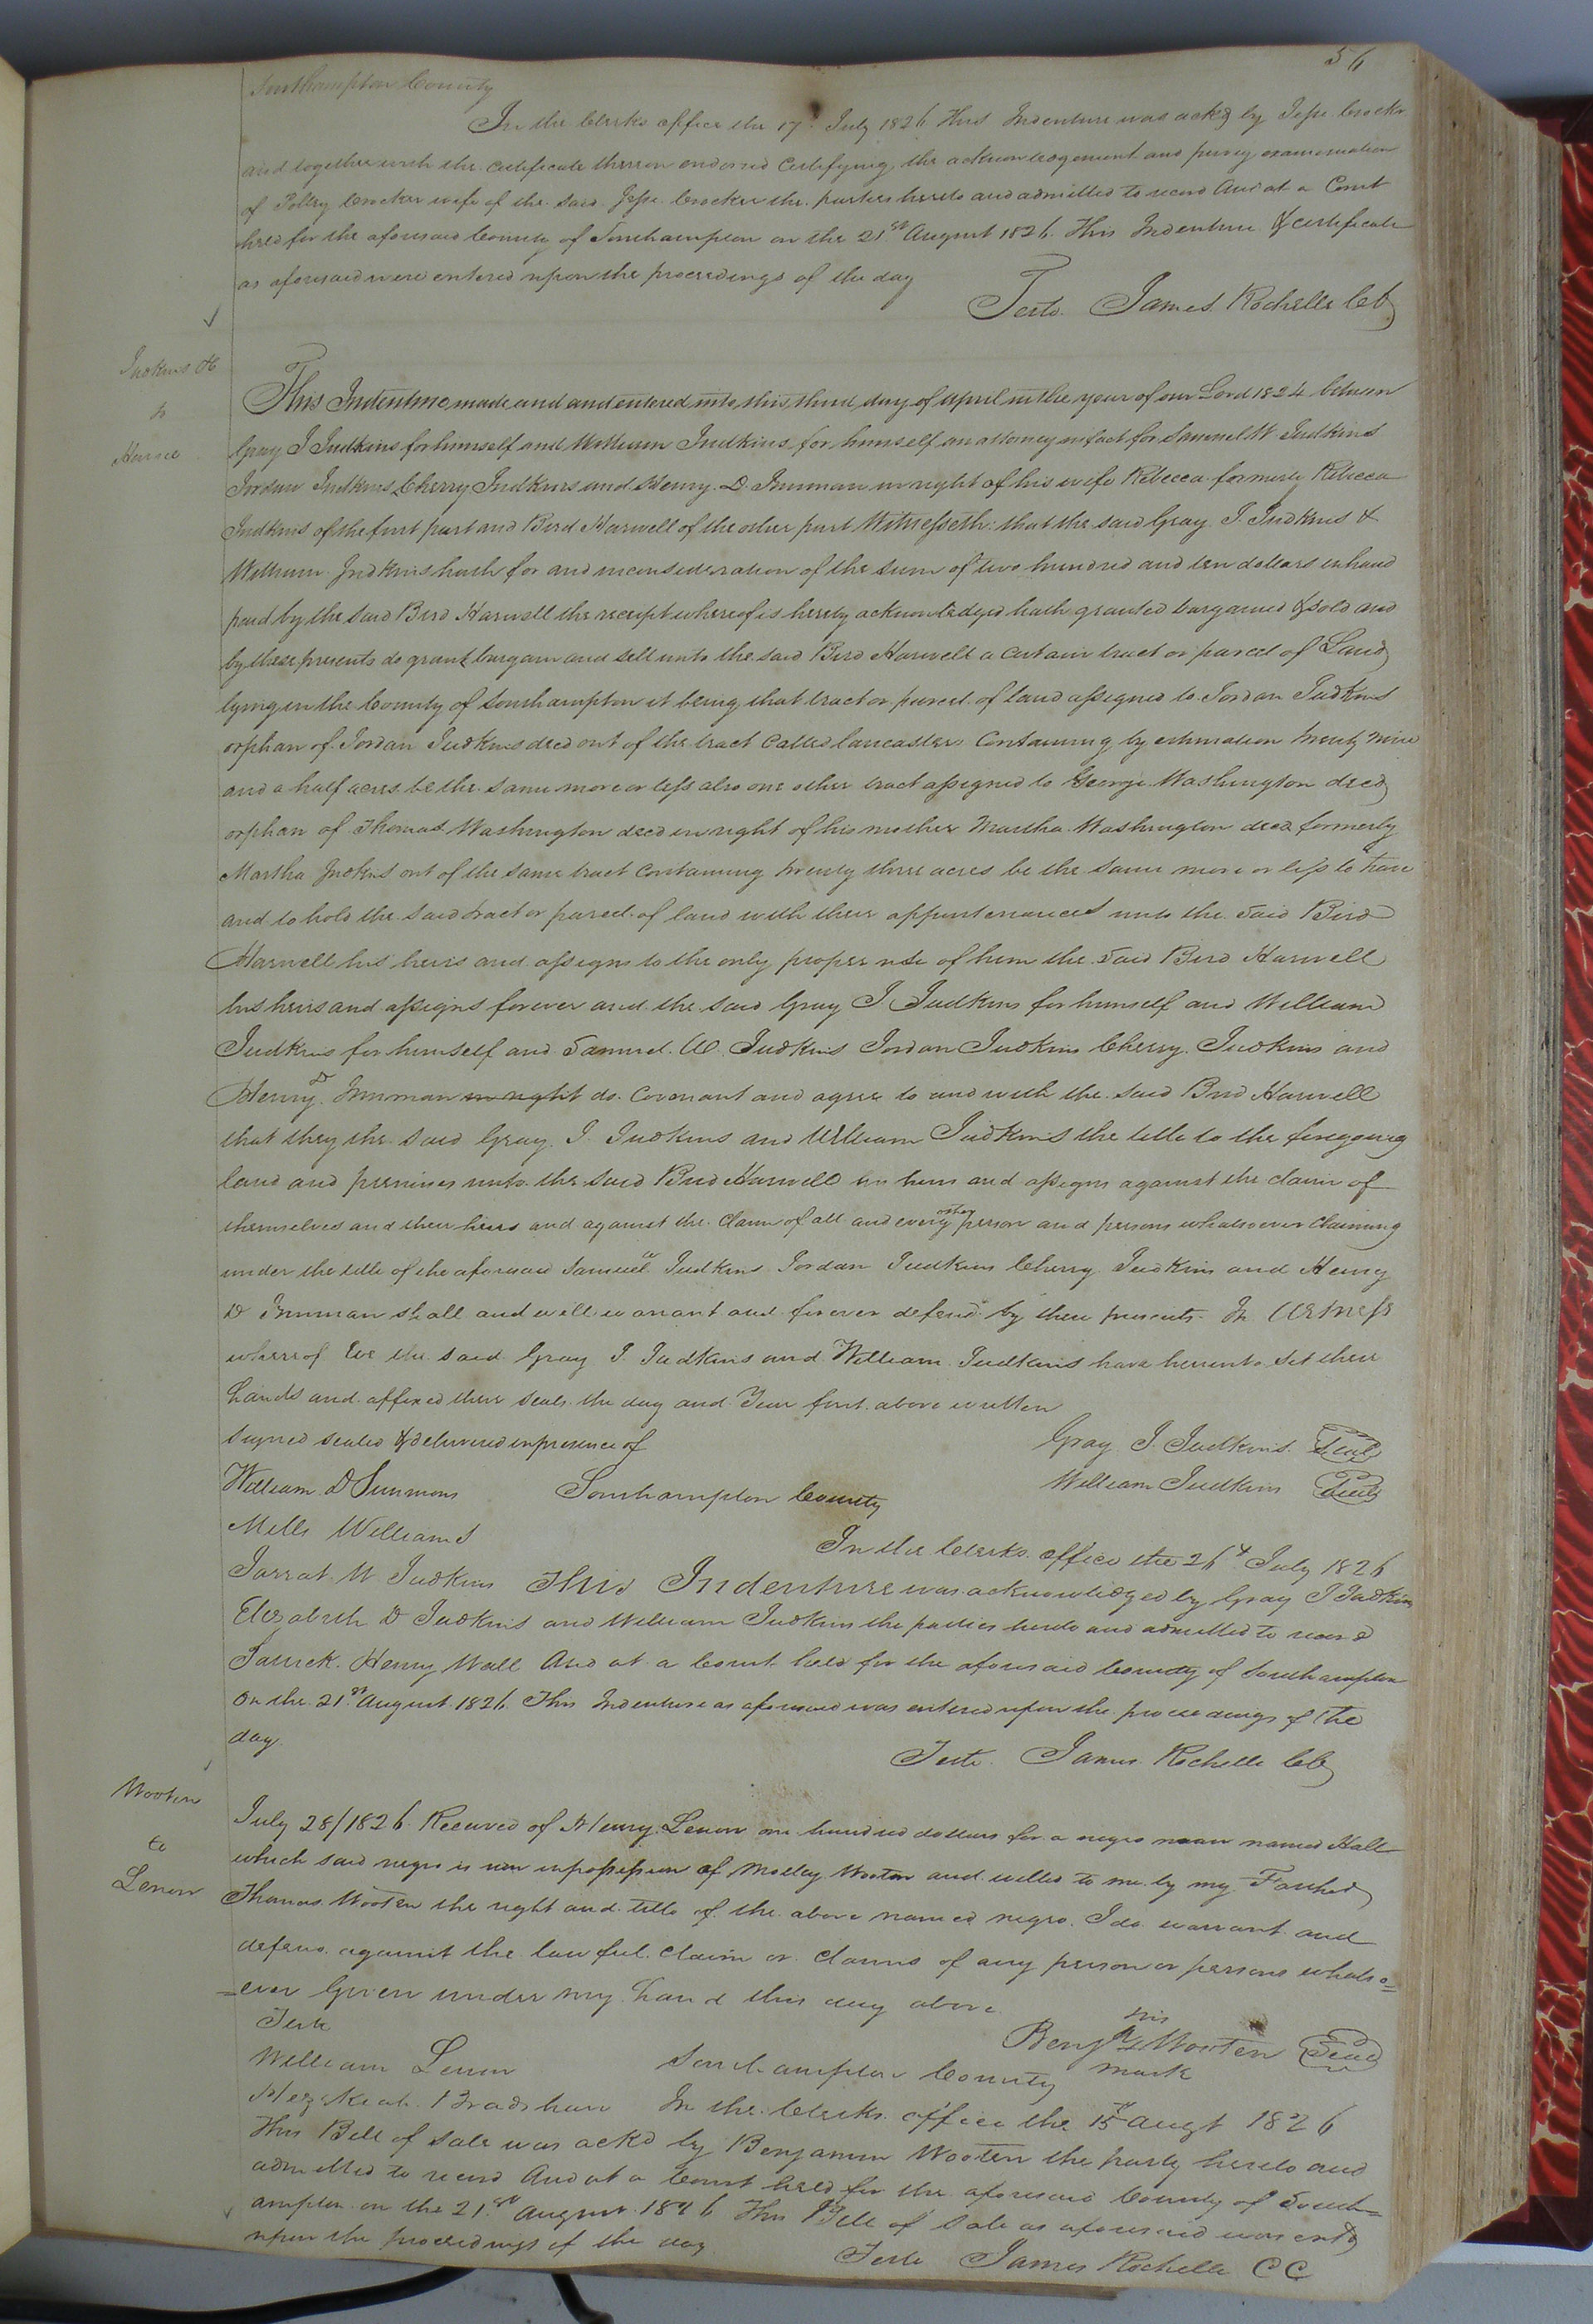 56
Southampton County
In the Clerks office the 17th July 1826 This Indenture was ackd by Jesse Crocker
and together with the certificate thereon endorsed certifying the acknowledgement and privy examination
of Polley Crocker wife of the said Jesse Crocker the parties hereto and admitted to record And at a Court
held for the aforesaid County of Southampton on the 21st August 1826 This Indenture & certificate
as aforesaid were entered upon the proceedings of the day
Teste James Rochelle CC
Judkins &c
to
Harwell
This Indenture made and and entered into this third day of April in the year of our Lord 1824 between
Gray J Judkins for himself and William Judkins for himself an attorney in fact for Samuel W Judkins
Jordan Judkins, Cherry Judkins and Henry D. Inmman in right of his wife Rebecca formerly Rebecca
Judkins of the first part and Bird Harwell of the other part Witnesseth: that the said Gray J. Judkins &
William Judkins hath for and in consideration of the sum of two hundred and ten dollars in hand
paid by the said Bird Harwell the receipt whereof is hereby acknowledged hath granted bargained & sold and
by these presents do grant bargain and sell unto the said Bird Harwell a certain tract or parcel of Land
lying in the County of Southampton it being that tract or parcel of land assigned to Jordan Judkins
orphan of Jordan Judkins decd out of the tract called lancasters Containing by estimation twenty nine
and a half acres be the same more or less also one other tract assigned to George Washington decd
orphan of Thomas Washington decd in right of his mother Martha Washington decd formerly
Martha Judkins out of the same tract containing twenty three acres be the same more or less to have
and to hold the said tract or parcel of land with their appurtenances unto the said Bird
Harwell his heirs and assigns to the only proper use of him the said Bird Harwell
his heirs and assigns forever and the said Gray J Judkins for himself and William
Judkins for himself and Samuel W. Judkins Jordan Judkins Cherry Judkins and
Henry D Inmman in right do Covenant and agree to and with the said Bird Harwell
that they the said Gray J. Judkins and William Judkins the title to the foregoing
land and premises unto the said Bird Harwell his heirs and assigns against the claim of
themselves and their heirs and against the claim of all and every other person and persons whatsoever claiming
under the title of the aforesaid Samuel W Judkins Jordan Judkins Cherry Judkins and Henry
D Inmman shall and will warrant and forever defend by these presents In Witness
whereof We the said Gray J. Judkins and William Judkins have hereunto set their
hands and affixed their seals the day and Year first above written
Signed sealed & delivered in presence of
Gray J. Judkins Seal
William D Simmons
Southampton County
William Judkins Seal
Mills Williams
In the Clerks office the 26th July 1826
Jarrat W Judkins This Indenture was acknowledged by Gray J Judkins
Elizabeth D Judkins and William Judkins the parties hereto and admitted to record
Patrick Henry Wall And at a Court held for the aforesaid County of Southampton
on the 21st August 1826 This Indenture as aforesaid was entered upon the proceedings of the
day.
Teste. James Rochelle CC
Wooten
to
Lenow
July 28/1826 Received of Henry Lenow one hundred dollars for a negro man named Hall
which said negro is now in possession of Molley Wooten and willed to me by my Farther
Thomas Wooten the right and title of the above named negro I do warrant and
defend against the lawful claim or claims of any person or persons whatso=
=ever Given under my hand this day above
Teste
his
Benja Wooten Seal
mark
William Lenow
Southampton County
Hezekiah Bradshaw In the Clerks office the 15th Augt 1826
This Bill of Sale was ackd by Benjamin Wooten the party hereto and
admitted to record And at a Court held for the aforesaid County of South=
ampton on the 21st August 1826 This Bill of Sale as aforesaid was entd
upon the proceedings of the day
Teste James Rochelle CC